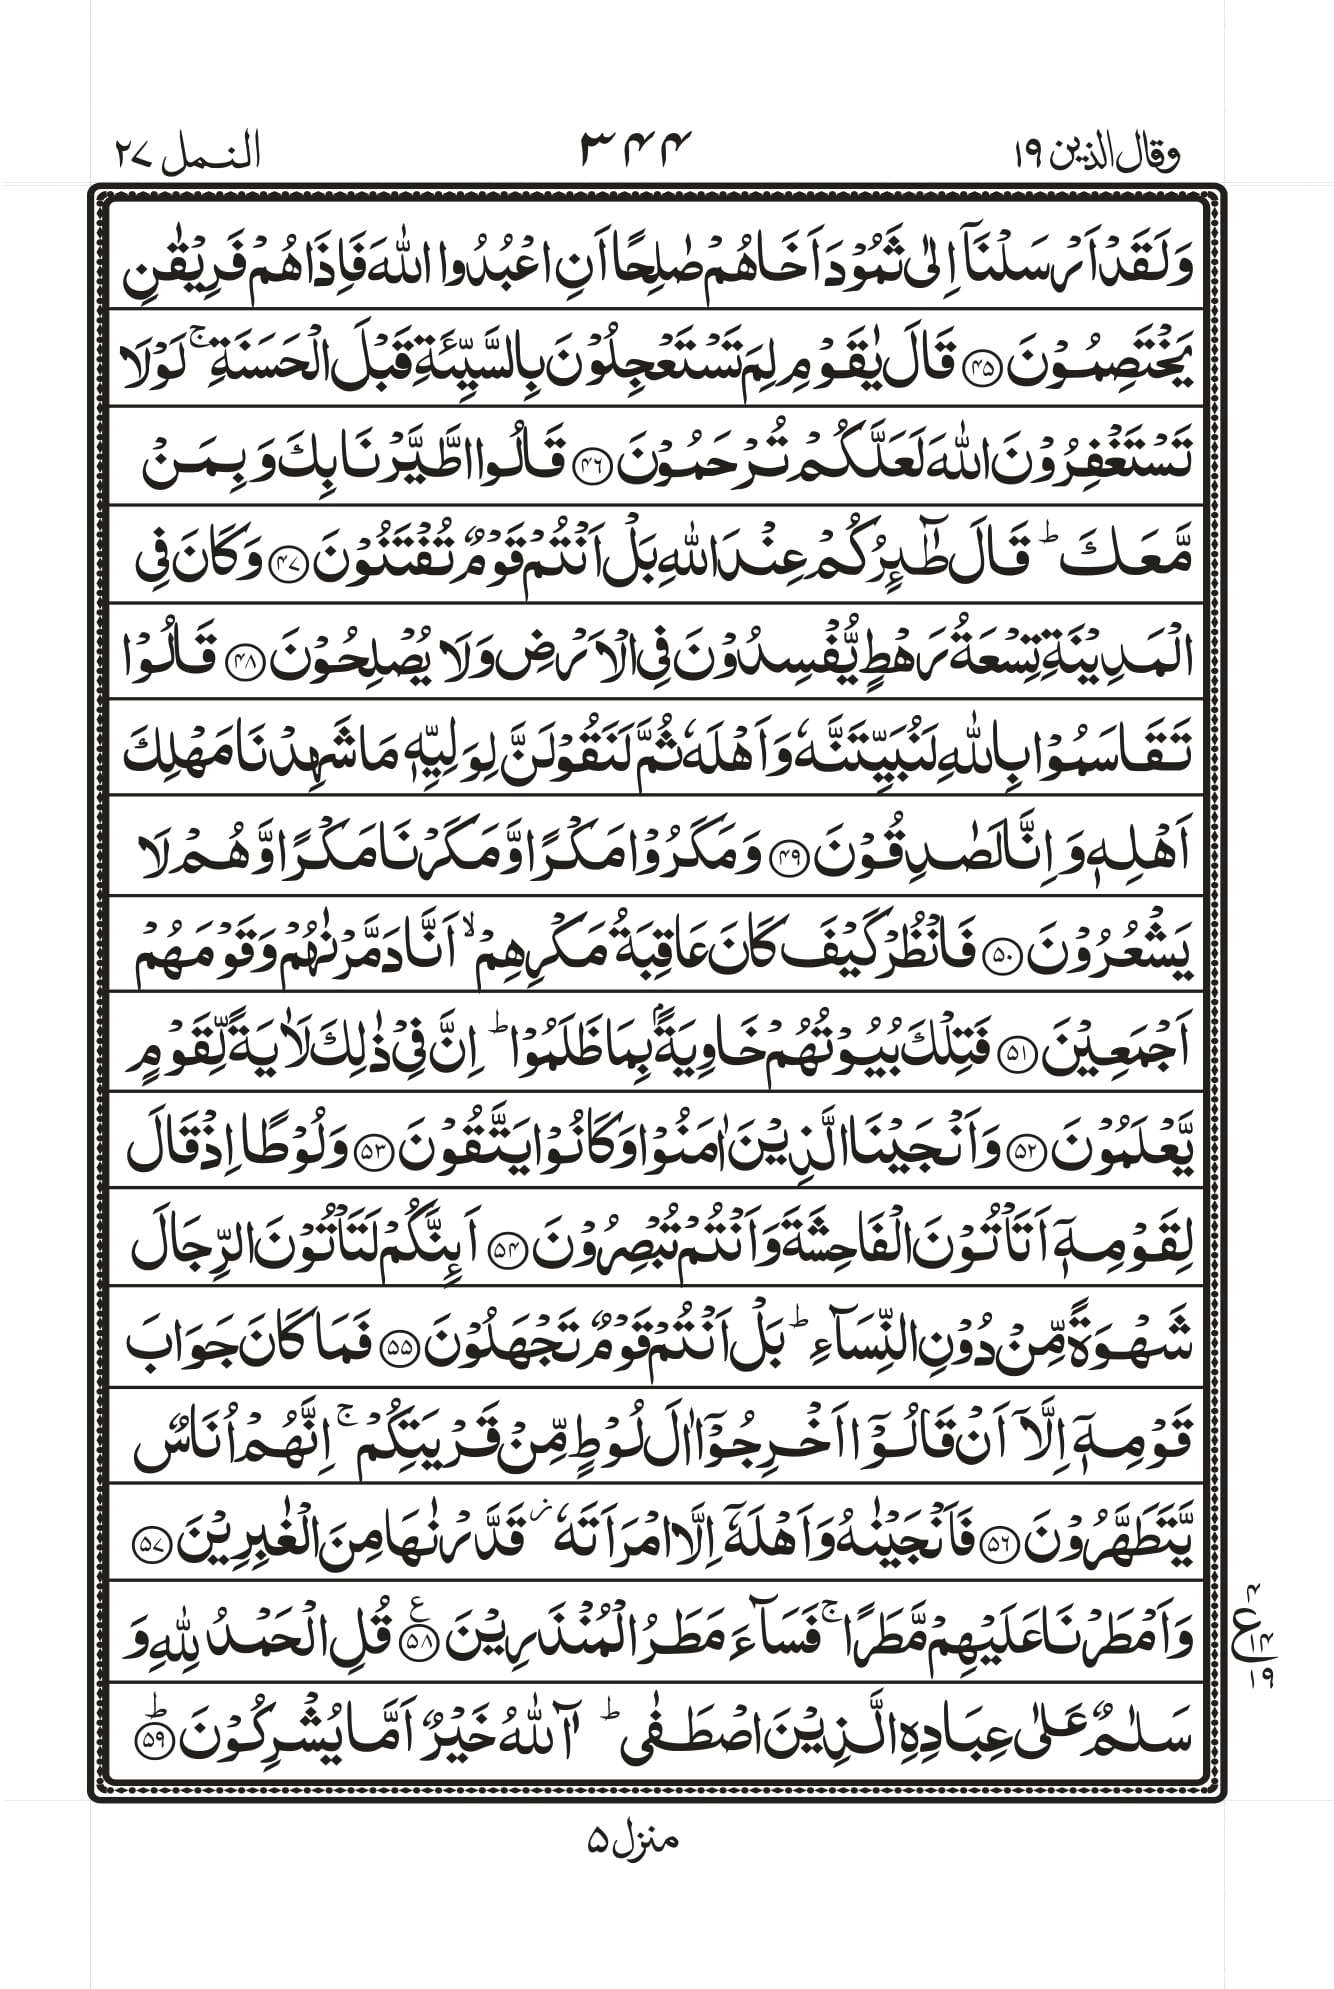 وقال الذين ۱۹
۳۴۴
النمل ۲۷
وَلَقَدۡ اَرۡسَلۡنَاۤ اِلٰى ثَمُوۡدَ اَخَاهُمۡ صٰلِحًا اَنِ اعۡبُدُوا اللّٰهَ فَاِذَا هُمۡ فَرِيۡقٰنِ
يَخۡتَصِمُوۡنَ ﴿۴۵﴾ قَالَ يٰقَوۡمِ لِمَ تَسۡتَعۡجِلُوۡنَ بِالسَّيِّئَةِ قَبۡلَ الۡحَسَنَةِ ۚ لَوۡلَا
تَسۡتَغۡفِرُوۡنَ اللّٰهَ لَعَلَّكُمۡ تُرۡحَمُوۡنَ ﴿۴۶﴾ قَالُوا اطَّيَّرۡنَا بِكَ وَبِمَنۡ
مَّعَكَ ؕ قَالَ طٰٓٮِٕرُكُمۡ عِنۡدَ اللّٰهِ بَلۡ اَنۡتُمۡ قَوۡمٌ تُفۡتَنُوۡنَ ﴿۴۷﴾ وَكَانَ فِى
الۡمَدِيۡنَةِ تِسۡعَةُ رَهۡطٍ يُّفۡسِدُوۡنَ فِى الۡاَرۡضِ وَلَا يُصۡلِحُوۡنَ ﴿۴۸﴾ قَالُوۡا
تَقَاسَمُوۡا بِاللّٰهِ لَنُبَيِّتَنَّهٗ وَاَهۡلَهٗ ثُمَّ لَنَقُوۡلَنَّ لِوَلِيِّهٖ مَا شَهِدۡنَا مَهۡلِكَ
اَهۡلِهٖ وَاِنَّا لَصٰدِقُوۡنَ ﴿۴۹﴾ وَمَكَرُوۡا مَكۡرًا وَّمَكَرۡنَا مَكۡرًا وَّهُمۡ لَا
يَشۡعُرُوۡنَ ﴿۵۰﴾ فَانْظُرۡ كَيۡفَ كَانَ عَاقِبَةُ مَكۡرِهِمۡ ۙ اَنَّا دَمَّرۡنٰهُمۡ وَقَوۡمَهُمۡ
اَجۡمَعِيۡنَ ﴿۵۱﴾ فَتِلۡكَ بُيُوۡتُهُمۡ خَاوِيَةًۢ بِمَا ظَلَمُوۡا ؕ اِنَّ فِىۡ ذٰلِكَ لَاٰيَةً لِّقَوۡمٍ
يَّعۡلَمُوۡنَ ﴿۵۲﴾ وَاَنۡجَيۡنَا الَّذِيۡنَ اٰمَنُوۡا وَكَانُوۡا يَتَّقُوۡنَ ﴿۵۳﴾ وَلُوۡطًا اِذۡ قَالَ
لِقَوۡمِهٖۤ اَتَاۡتُوۡنَ الۡفَاحِشَةَ وَاَنۡتُمۡ تُبۡصِرُوۡنَ ﴿۵۴﴾ اَٮِٕنَّكُمۡ لَتَاۡتُوۡنَ الرِّجَالَ
شَهۡوَةً مِّنۡ دُوۡنِ النِّسَآءِ ؕ بَلۡ اَنۡتُمۡ قَوۡمٌ تَجۡهَلُوۡنَ ﴿۵۵﴾ فَمَا كَانَ جَوَابَ
قَوۡمِهٖۤ اِلَّاۤ اَنۡ قَالُوۡۤا اَخۡرِجُوۡۤا اٰلَ لُوۡطٍ مِّنۡ قَرۡيَتِكُمۡ ۚ اِنَّهُمۡ اُنَاسٌ
يَّتَطَهَّرُوۡنَ ﴿۵۶﴾ فَاَنۡجَيۡنٰهُ وَاَهۡلَهٗۤ اِلَّا امۡرَاَتَهٗ ز قَدَّرۡنٰهَا مِنَ الۡغٰبِرِيۡنَ ﴿۵۷﴾
وَاَمۡطَرۡنَا عَلَيۡهِمۡ مَّطَرًا ۚ فَسَآءَ مَطَرُ الۡمُنۡذَرِيۡنَ ﴿۵۸﴾ ع قُلِ الۡحَمۡدُ لِلّٰهِ وَ
سَلٰمٌ عَلٰى عِبَادِهِ الَّذِيۡنَ اصۡطَفٰى ؕ آٰللّٰهُ خَيۡرٌ اَمَّا يُشۡرِكُوۡنَ ﴿۵۹﴾ ؕ
۴
ع ۱۴
۱۹
منزل ۵